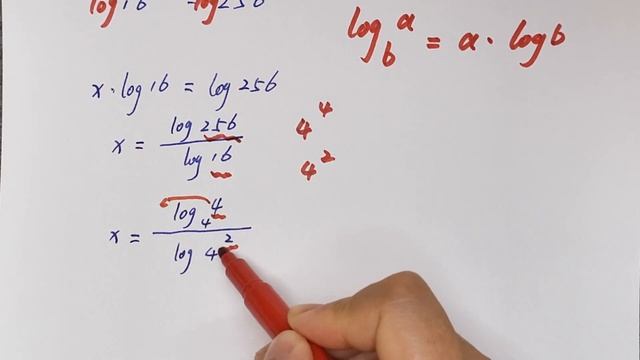 log16 log256
log_b^a = a · log b
x · log16 = log256
x = log256 / log16
4^4
4^2
x = log_4 4 / log 4^2